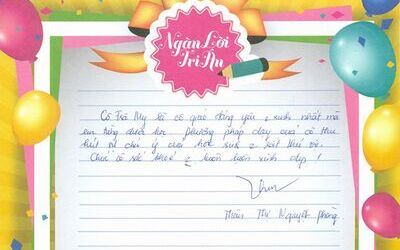 Ngàn Lời
Tri Ân
Cô Trà My là cô giáo đáng yêu & xinh nhất mà
em từng được học. Phương pháp dạy của cô thu
hút sự chú ý của học sinh & rất thú vị.
Chúc cô sức khoẻ & luôn luôn xinh đẹp!
Thị Nguyệt